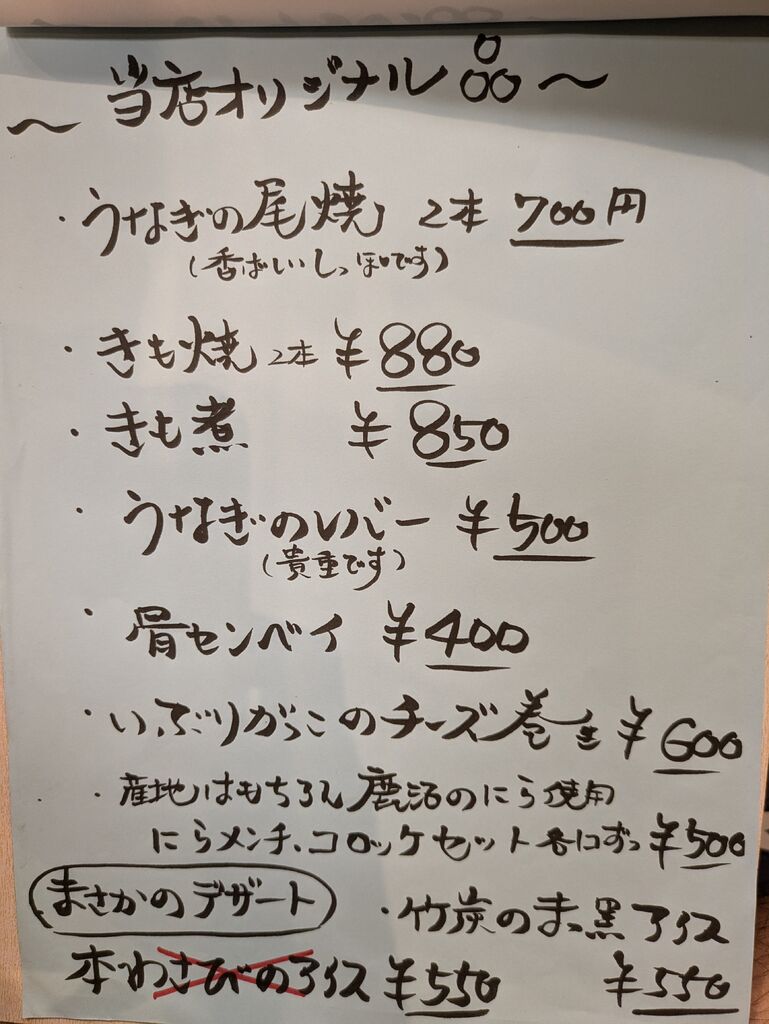 ～当店オリジナル品～
・うなぎの尾焼 2本 700円
(香ばしいしっぽです)
・きも焼 2本 ¥880
・きも煮 ¥850
・うなぎのレバー ¥500
(貴重です)
・骨センベイ ¥400
・いぶりがっこのチーズ巻き ¥600
・産地はもちろん鹿沼のにら使用
にらメンチ、コロッケセット 各1コずつ ¥500
まさかのデザート
・竹炭のまっ黒アイス
¥550
本わさびのアイス ¥550